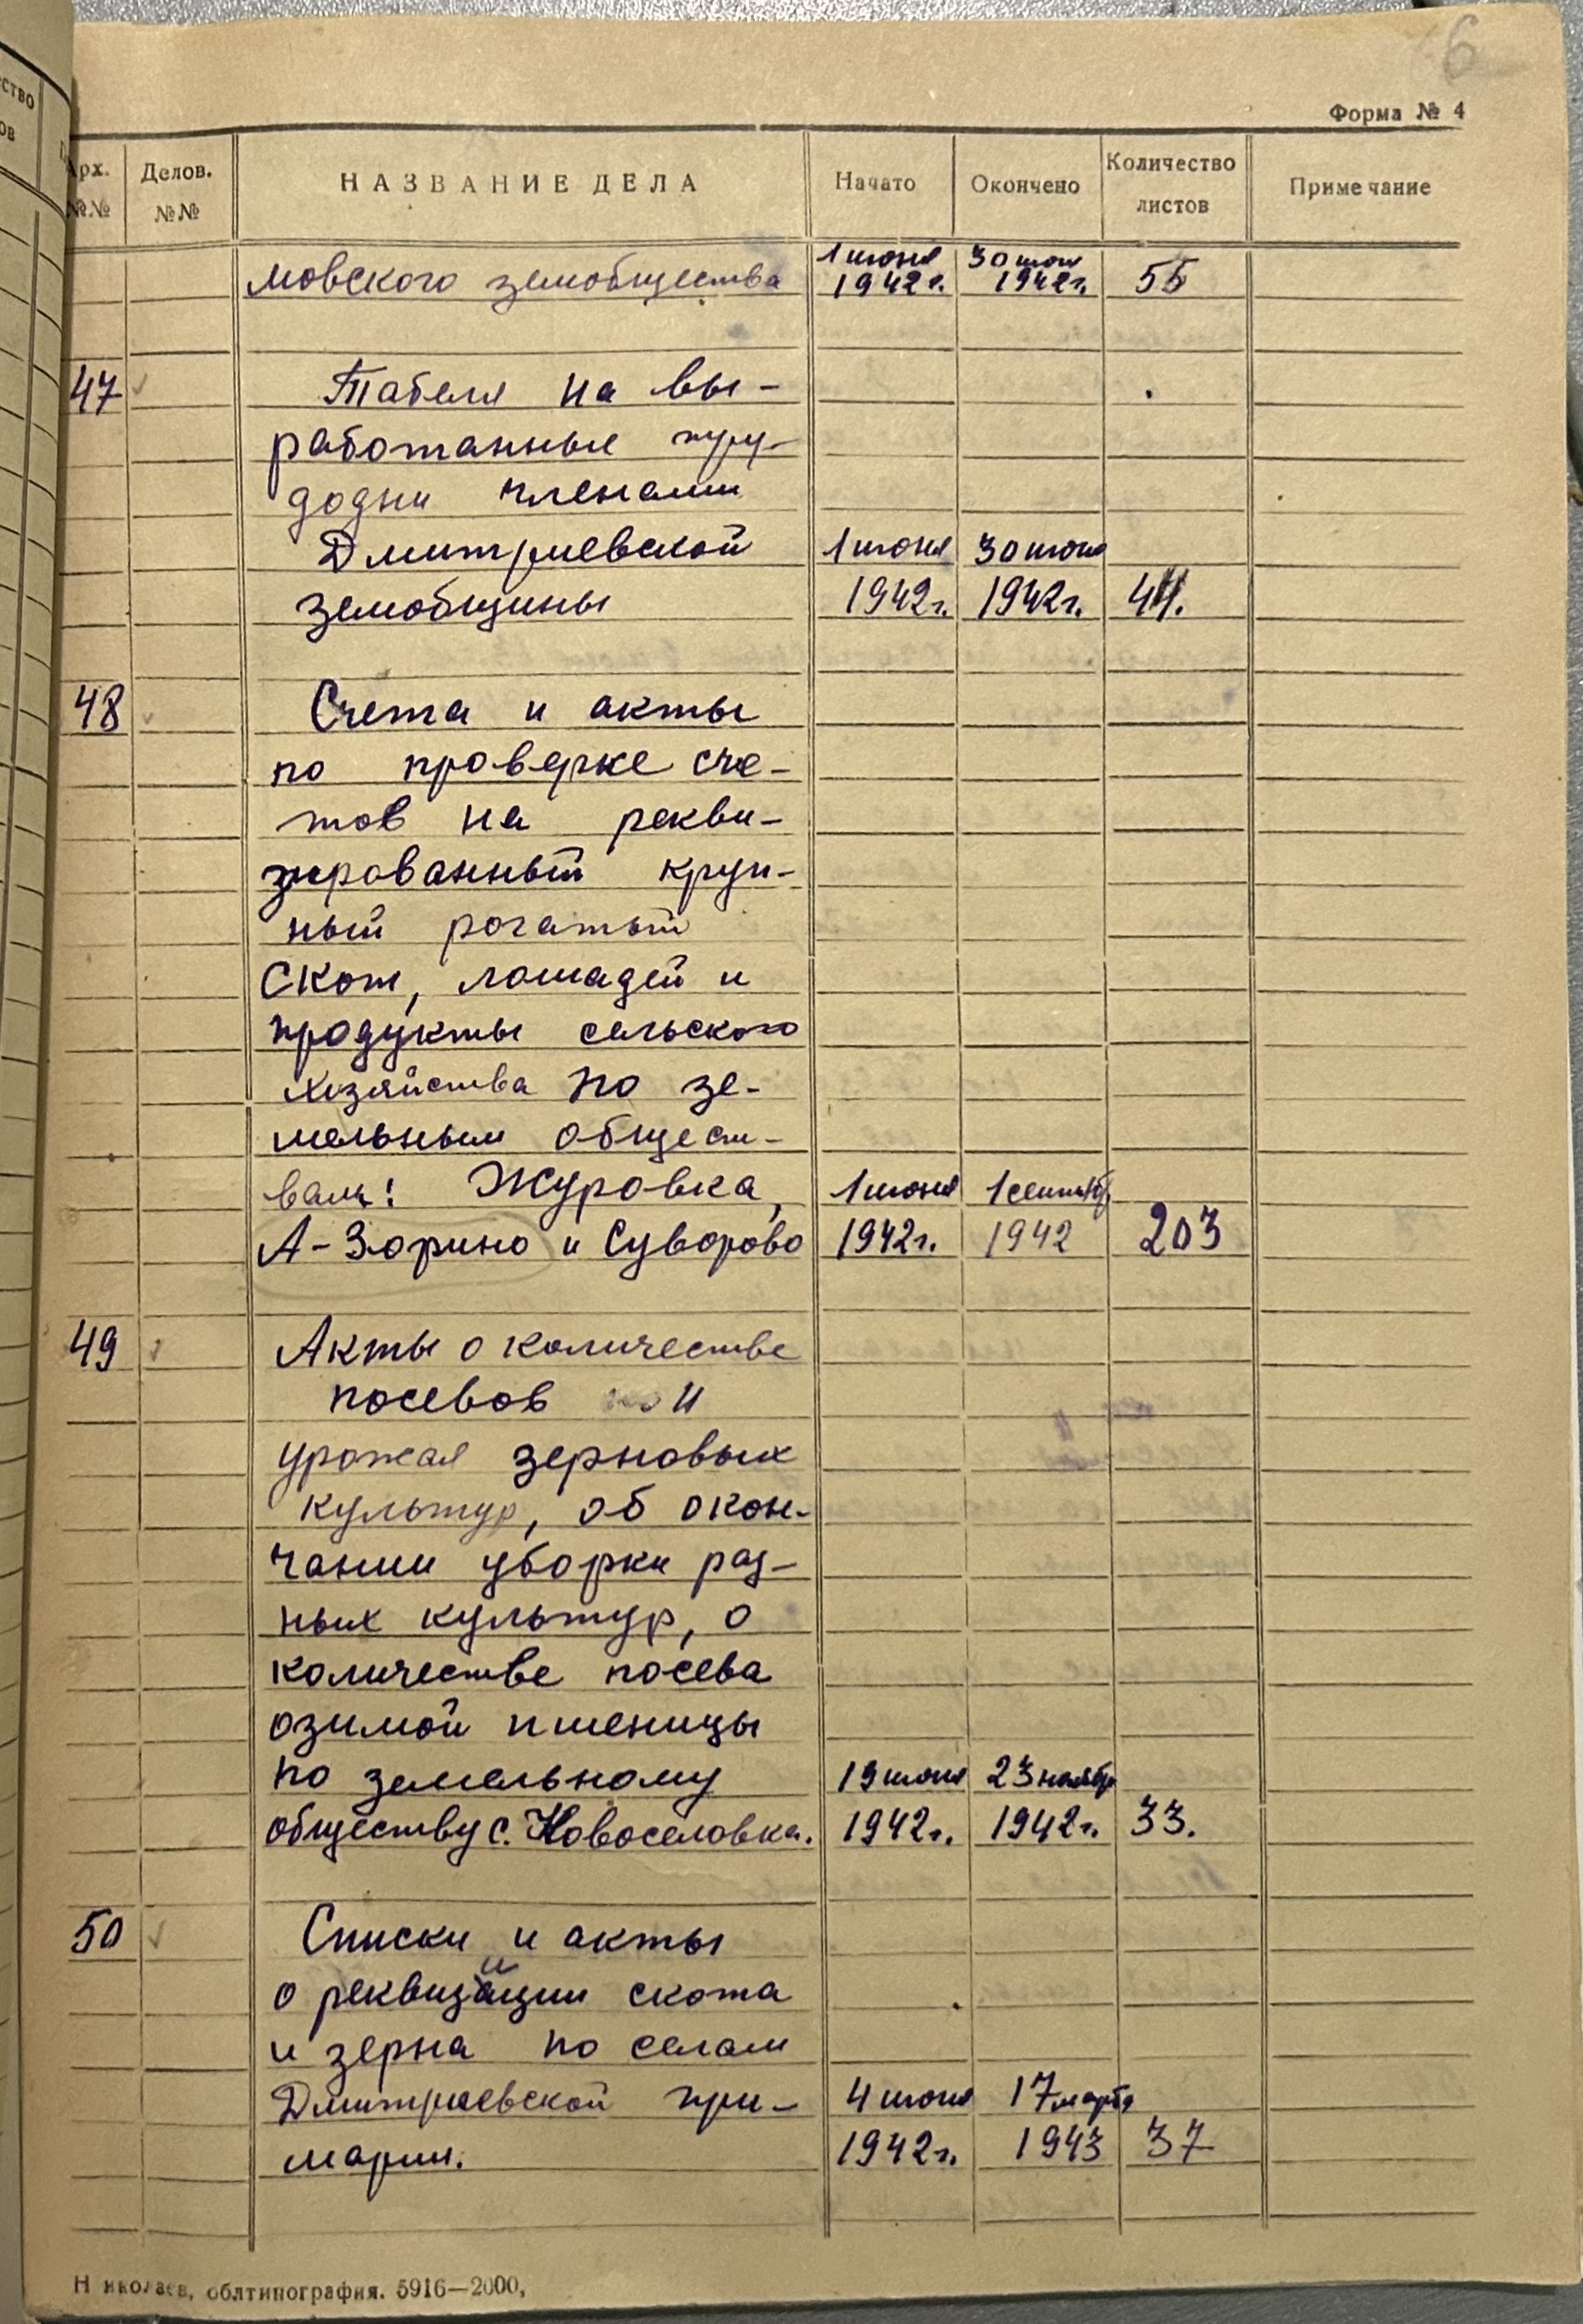 6
Форма № 4
ство
ов
Арх. №№ Делов. №№ НАЗВАНИЕ ДЕЛА Начато Окончено Количество листов Примечание
мовского земобщества 1 июня 1942 г. 30 июня 1942 г. 55
47 Табеля на вы-
работанные тру-
додни членами
Дмитриевской 1 июня 30 июня
земобщины 1942 г. 1942 г. 44.
48 Счета и акты
по проверке сче-
тов на рекви-
зированный круп-
ный рогатый
скот, лошадей и
продукты сельского
хозяйства по зе-
мельным общест-
вам: Журовка, 1 июня 1 сентябр
А-Зорино и Суворово 1942 г. 1942 203
49 Акты о количестве
посевов и
урожая зерновых
культур, об окон-
чании уборки раз-
ных культур, о
количестве посева
озимой пшеницы
по земельному 19 июня 23 ноябр
обществу с. Новоселовка. 1942 г. 1942 г. 33.
50 Списки и акты
о реквизиции скота
и зерна по селам
Дмитриевской при- 4 июня 17 марта
марии. 1942 г. 1943 37
Николаев, облтипография. 5916—2000,